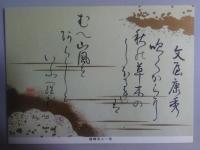 文屋康秀
吹くからに
秋の草木の
しをるれは
むへ山風を
あらしと
いふらむ